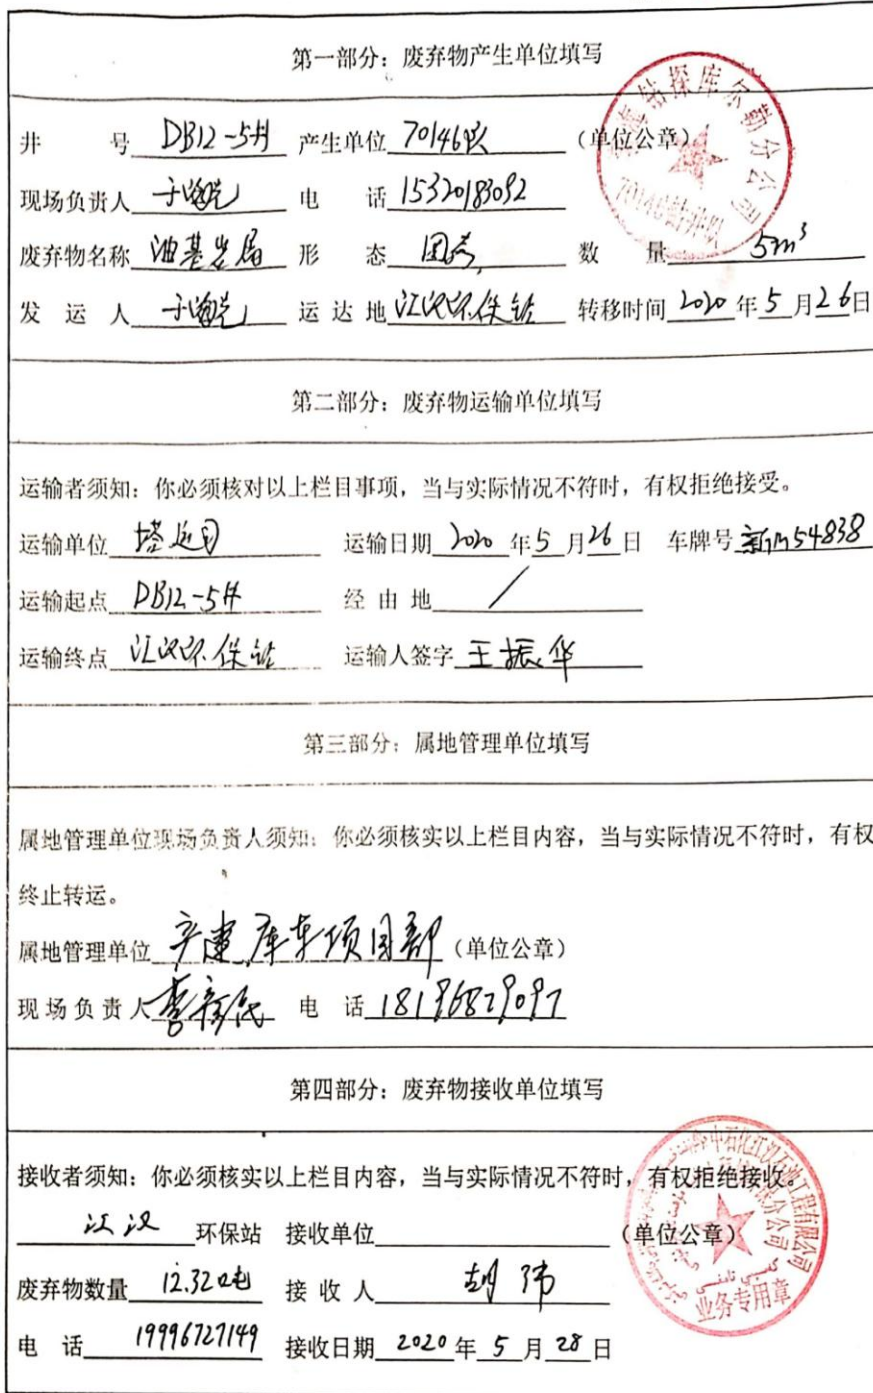 第一部分：废弃物产生单位填写
井 号 DB12-5H 产生单位 70146队 （单位公章）
钻探库尔勒分公司
70146钻井队
现场负责人 电 话 15320183092
废弃物名称 油基岩屑 形 态 固态 数 量 5m³
发 运 人 运 达 地 江汉环保站 转移时间 2020 年 5 月 26 日
第二部分：废弃物运输单位填写
运输者须知：你必须核对以上栏目事项，当与实际情况不符时，有权拒绝接受。
运输单位 塔运司 运输日期 2020 年 5 月 26 日 车牌号 新 54838
运输起点 DB12-5H 经 由 地 /
运输终点 江汉环保站 运输人签字 王振华
第三部分：属地管理单位填写
属地管理单位现场负责人须知：你必须核实以上栏目内容，当与实际情况不符时，有权
终止转运。
属地管理单位 库车项目部 （单位公章）
现场负责人 电 话 18196829097
第四部分：废弃物接收单位填写
接收者须知：你必须核实以上栏目内容，当与实际情况不符时，有权拒绝接收。
江汉 环保站 接收单位 （单位公章）
中石化江汉石油工程有限公司
业务专用章
废弃物数量 12.32吨 接 收 人 胡玮
电 话 19996727149 接收日期 2020 年 5 月 28 日